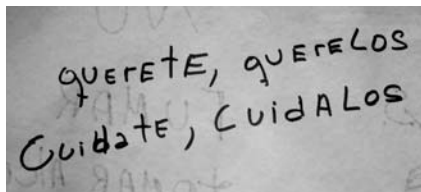 querete, querelos
Cuidate, cuidalos